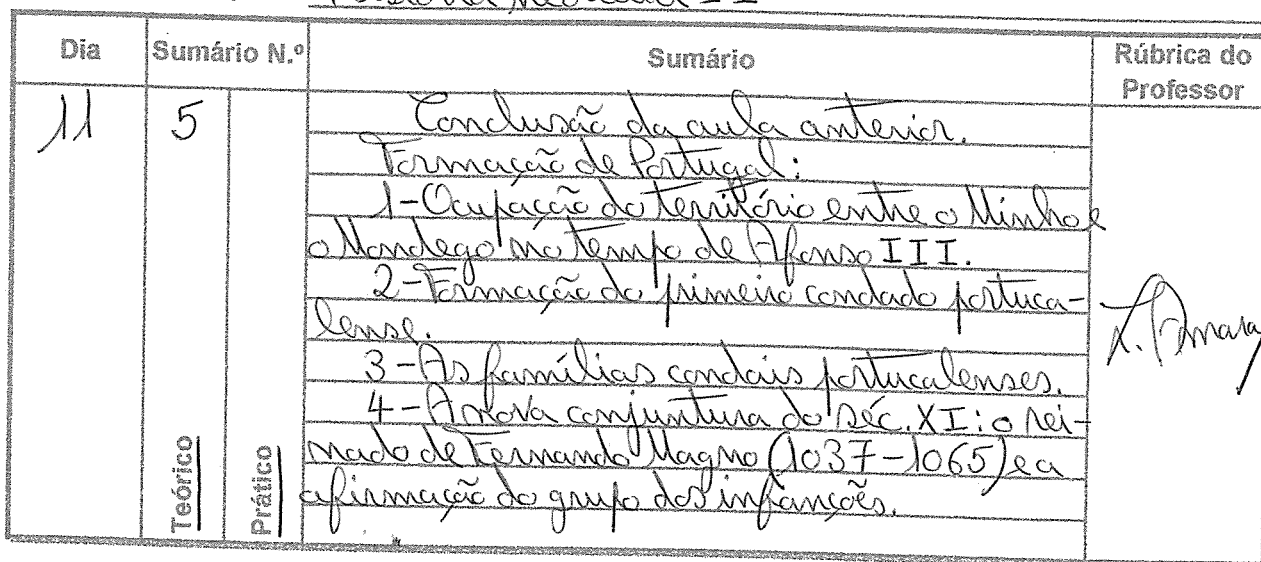 História Medieval II
Dia
Sumário N.º
Sumário
Rúbrica do
Professor
11
5
Conclusão da aula anterior.
Formação de Portugal:
1-Ocupação do território entre o Minho e
o Mondego no tempo de Afonso III.
2-Formação do primeiro condado portuca-
lense.
3-As famílias condais portucalenses.
4-A nova conjuntura do séc. XI: o rei-
nado de Fernando Magno (1037-1065) e a
afirmação do grupo dos infanções.
Teórico
Prático
L. Amaral